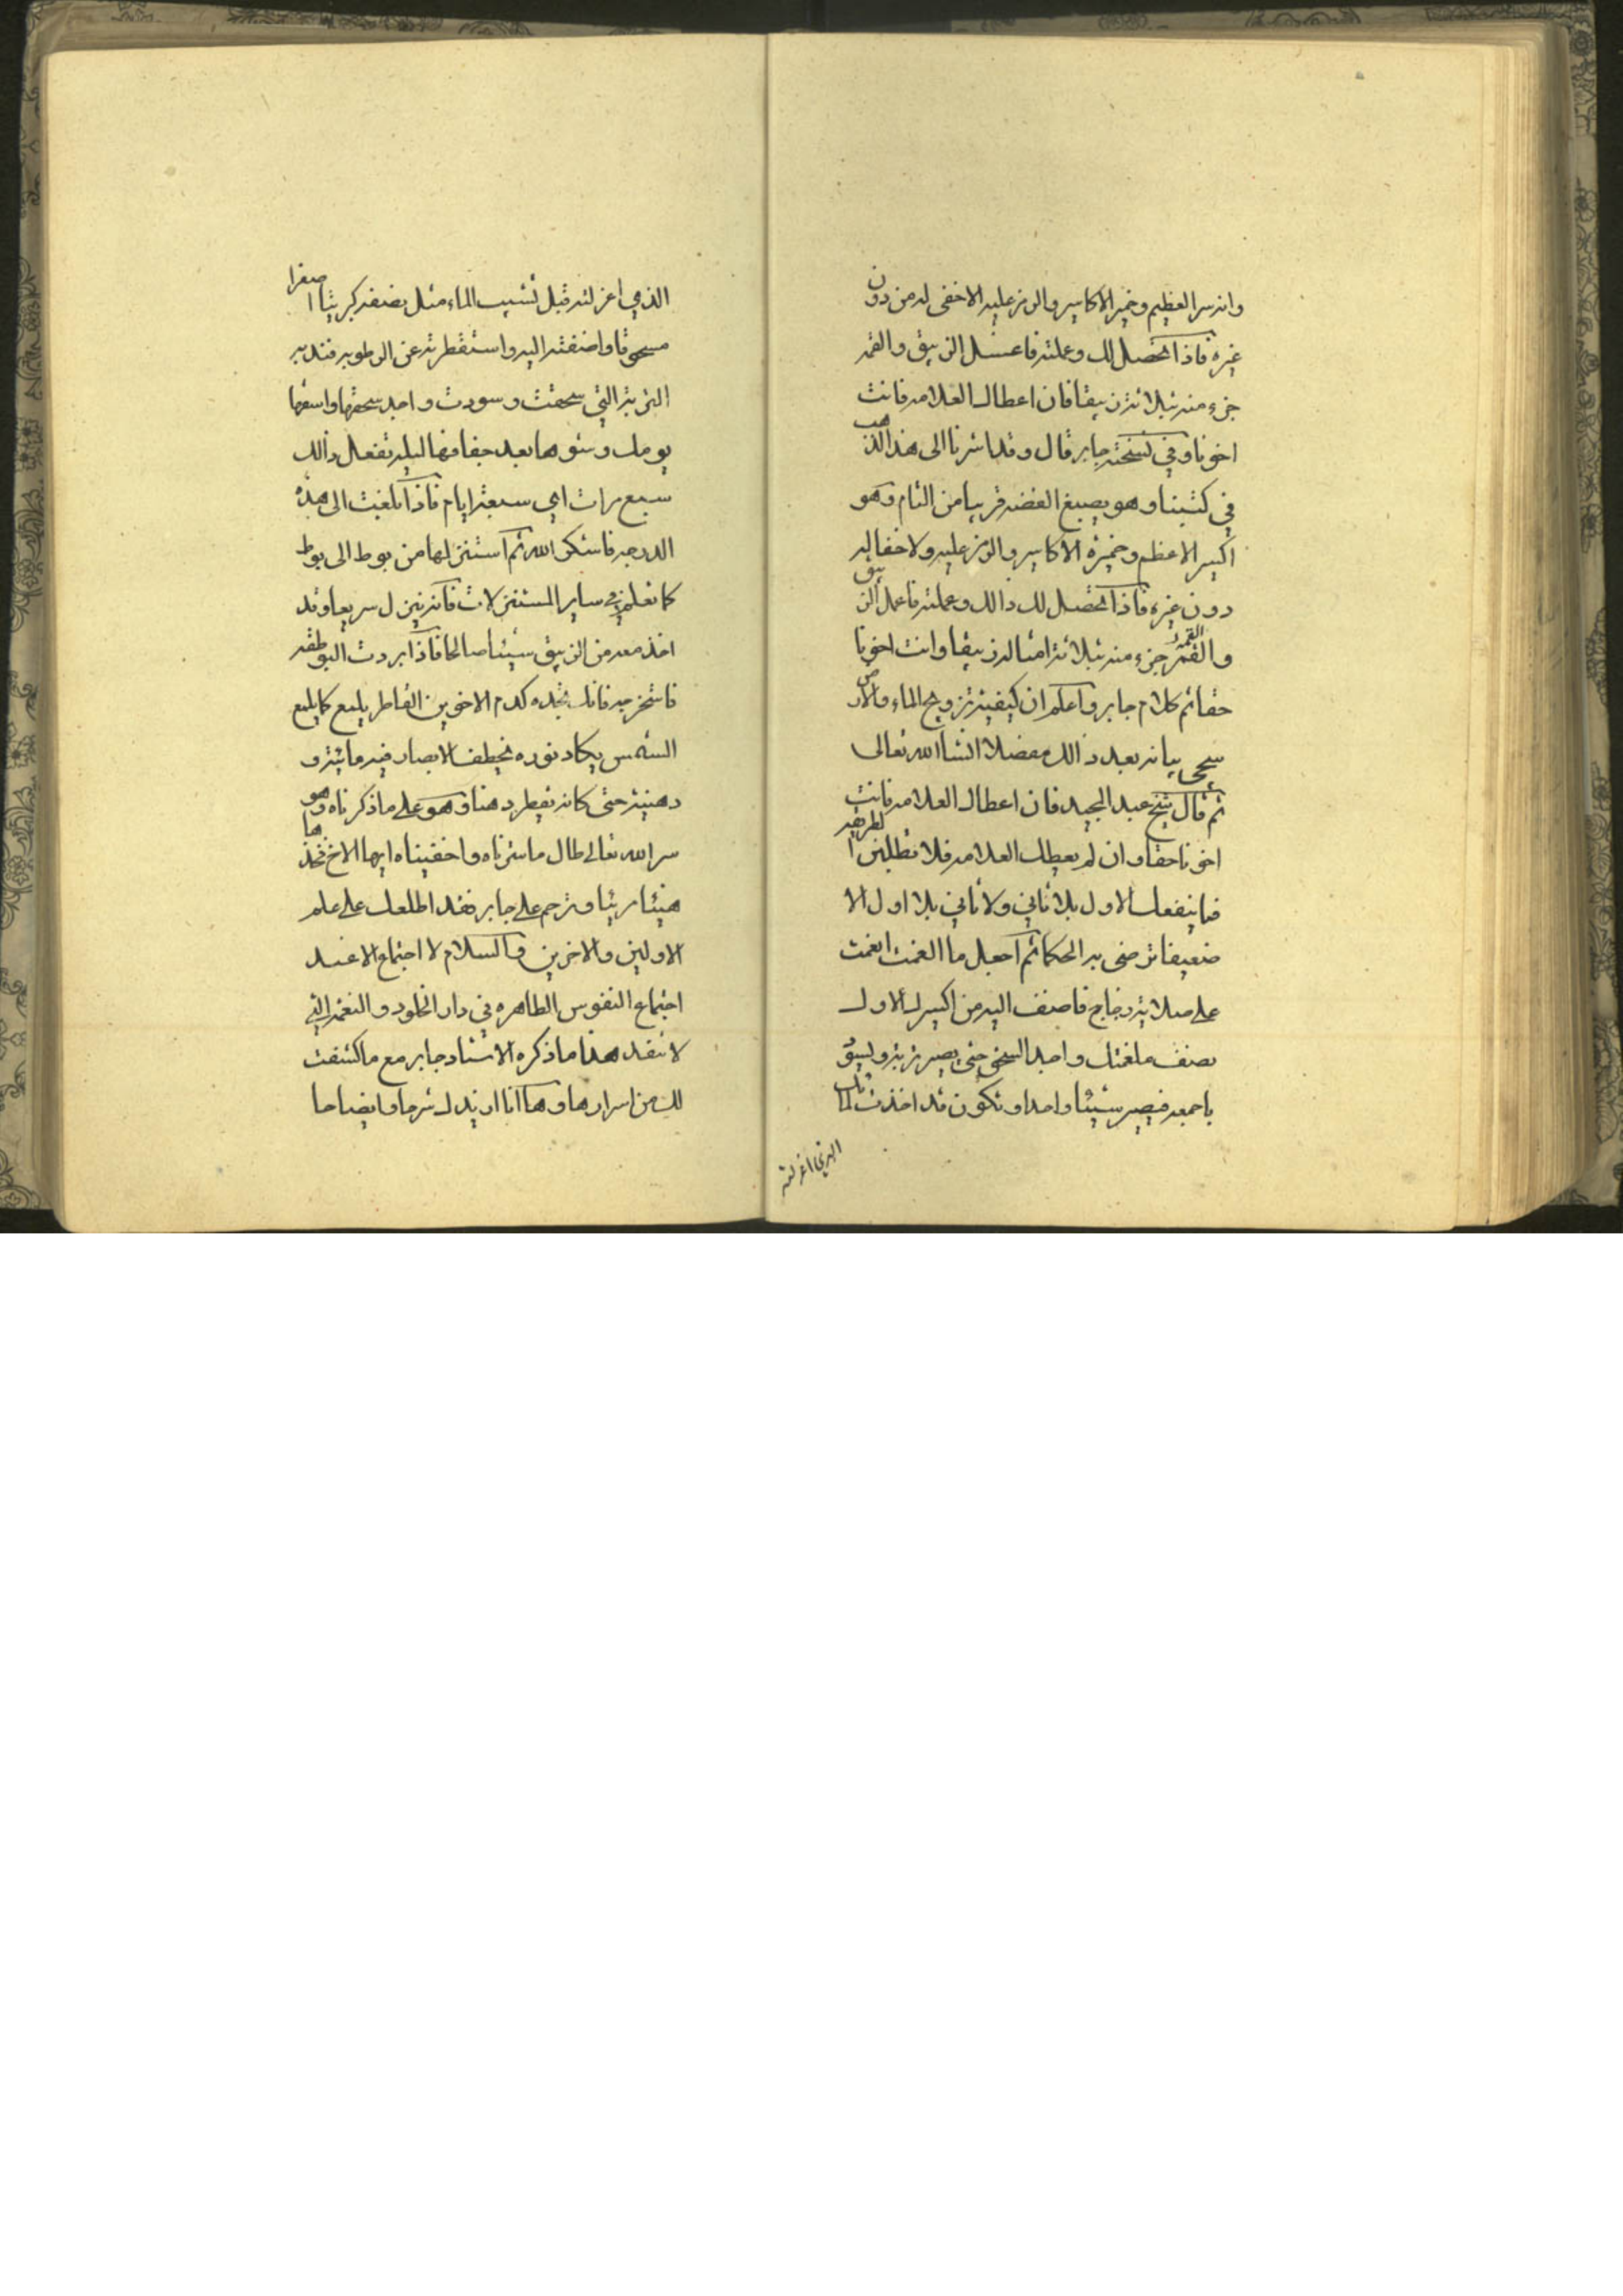 وانه سر العظيم وخمير الاكاسير والرمز عليه الاخفى له من دون
غيره فاذا تحصل لك وعملته فاغسل الزيبق والقمر
جزء منه بثلاثة زيبقا فان اعطاك العلامه فانت
اخونا وفي نسخته جابر قال وقد اشرنا الى هذا الذهب
في كتبنا وهو يصبغ الفضه قريبا من التام وهو
اكسير الاعظم وخميرة الاكاسير والرمز عليه ولا خفا له
دون غيره فاذا تحصل لك ذالك وعملته فاعمل الزيبق
والقمر جزء منه بثلاثة امثاله زيبقا وانت اخونا
حقا ثم كلام جابر واعلم ان كيفية تزويج الماء والارض
سيجي بيانه بعد ذالك مفصلا انشا الله تعالى
ثم قال شيخ عبد المجيد فان اعطاك العلامه فانت
اخونا حقا وان لم يعطك العلامه فلا تطلبن الطريقه
فما ينفعك الاول بلا ثاني ولا ثاني بلا اول الا
ضعيفا ترضى به الحكما ثم اجعل ما الغمت
على صلاية زجاج فاضف اليه من اكسيرك الاول
نصف ملغمتك واجد السحق حتى يصير تربة ويسبق
باجمعه فيصير شيئا واحدا وتكون قد اخذت
الذي اعزلته
الذي اعزلته قبل تشبيب الماء مثل نصفه كبريتا اصفرا
مسحوقا واضفته اليه واستقطرته عن الرطوبه فند به
التربة التي سحقت وسودت واجد سحقها واسقها
يومك وشوها بعد جفافها ليله تفعل ذالك
سبع مرات اي سبعة ايام فاذا بلغت الى هذه
الدرجه فاشكر الله ثم استنزلها من بوط الى بوط
كما تعلم في ساير المستنزلات فانه ينزل سريعا وقد
اخذ معه من الزيبق شيئا صالحا فاذا بردت البوطقه
فاستخرجه فانك تجده كدم الاخوين القاطر يلمع كما يلمع
الشمس يكاد نوره يخطف الابصار فيه مائية و
دهنية حتى كانه يقطر دهنا وهو على ما ذكرناه وهو
سر الله تعالى طال ما سترناه واخفيناه ايها الاخ فخذها
هنيئا مريئا وترحم على جابر فقد اطلعك على علم
الاولين والاخرين والسلام لا اجتماع الا عند
اجتماع النفوس الطاهره في دار الخلود والنعمة التي
لا تنفد هذا ما ذكره الاستاد جابر مع ما كشفت
لك من اسرارها وها انا ازيدك شرحا وايضاحا